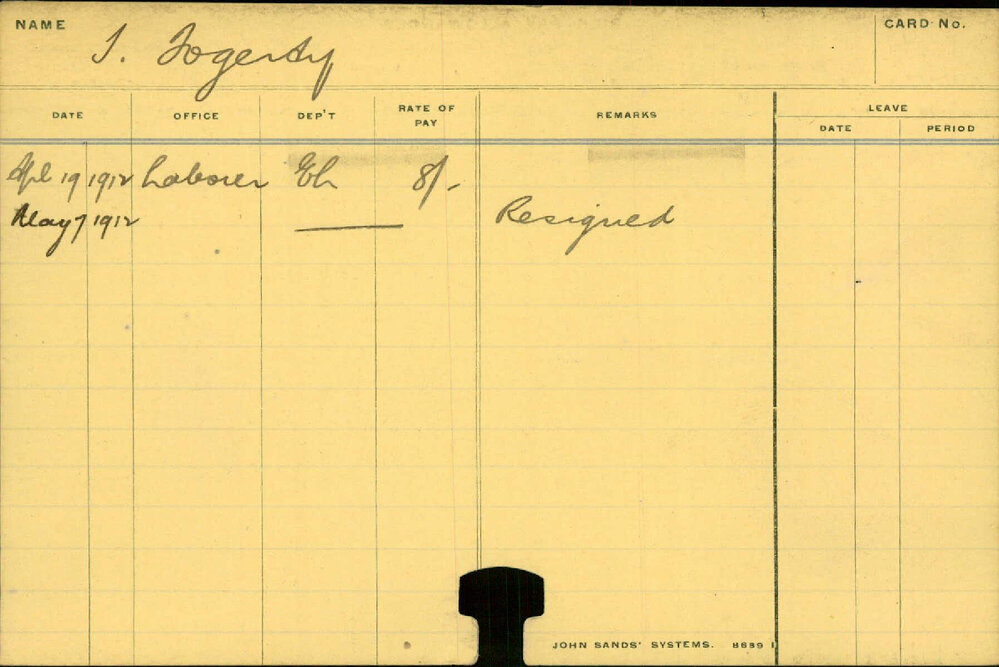 NAME
J. Fogerty
CARD No.
DATE OFFICE DEP'T RATE OF PAY REMARKS LEAVE
DATE PERIOD
Apl 19 1912 Laborer 8/-
May 7 1912 Resigned
JOHN SANDS' SYSTEMS. 8689